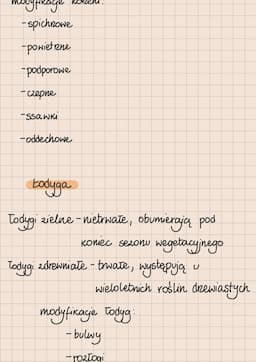 modyfikacje korzeni:
-spichrzowe
-powietrzne
-podporowe
-czepne
-ssawki
-oddechowe
Łodyga
Łodygi zielne - nietrwałe, obumierają pod
koniec sezonu wegetacyjnego
Łodygi zdrewniałe - trwałe, występują u
wieloletnich roślin drzewiastych
modyfikacje łodyg:
-bulwy
-rozłogi